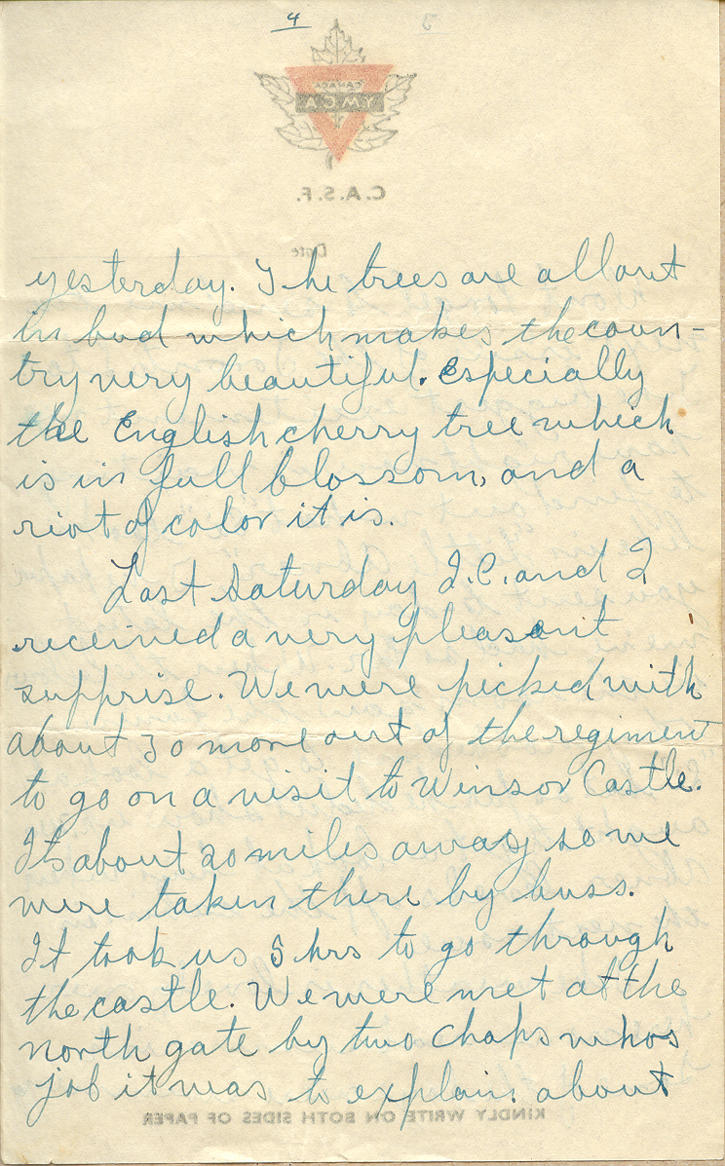 4 5
CANADA
Y.M.C.A.
C.A.S.F.
Date
yesterday. The trees are all out
in bud which makes the coun-
try very beautiful. Especially
the English cherry tree which
is in full blossom, and a
riot of color it is.
Last Saturday J.C. and I
received a very pleasant
supprise. We were picked with
about 30 more out of the regiment
to go on a visit to Winsor Castle.
Its about 20 miles away so we
were taken there by buss.
It took us 5 hrs to go through
the castle. We were met at the
north gate by two chaps whos
job it was to explain about
KINDLY WRITE ON BOTH SIDES OF PAPER